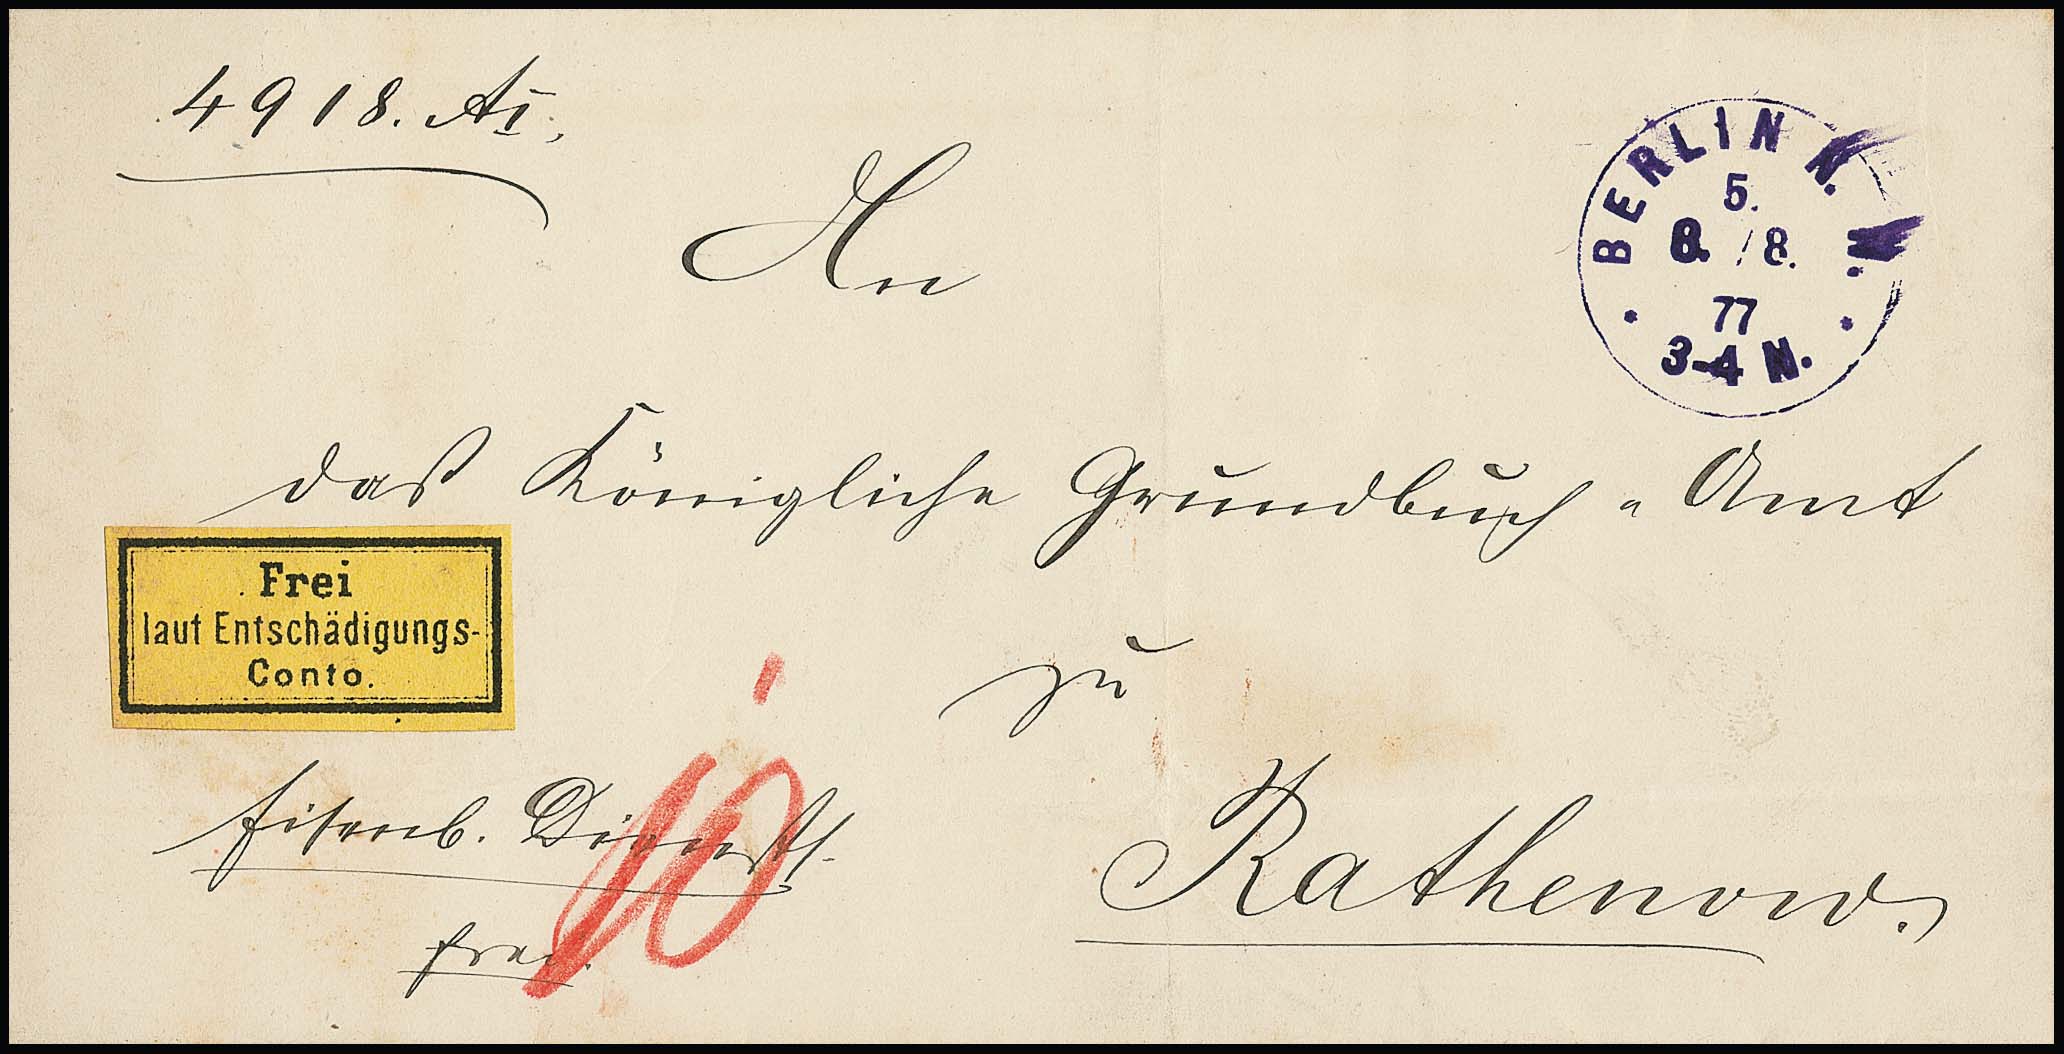 4918. AI.
BERLIN N. W.
5.
8. / 8.
77
3-4 N.
An
das Königliche Grundbuch-Amt
Frei
laut Entschädigungs-
Conto.
zu
10
Eisenb. Dienst
Rathenow.
frei.